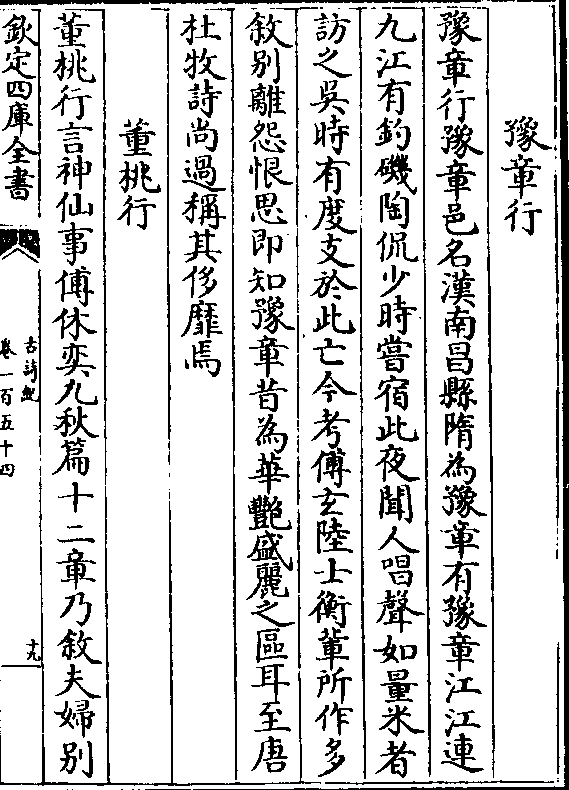 豫章行
豫章行豫章邑名漢南昌縣隋為豫章有豫章江江連
九江有釣磯陶侃少時嘗宿此夜聞人唱聲如量米者
訪之吳時有度支於此亡今考傅玄陸士衡輩所作多
敘别離怨恨思即知豫章昔為華艷盛麗之區耳至唐
杜牧詩尚過稱其侈靡焉
董桃行
董桃行言神仙事傅休奕九秋篇十二章乃敘夫婦别
欽定四庫全書
古詩紀
卷一百五十四
十九